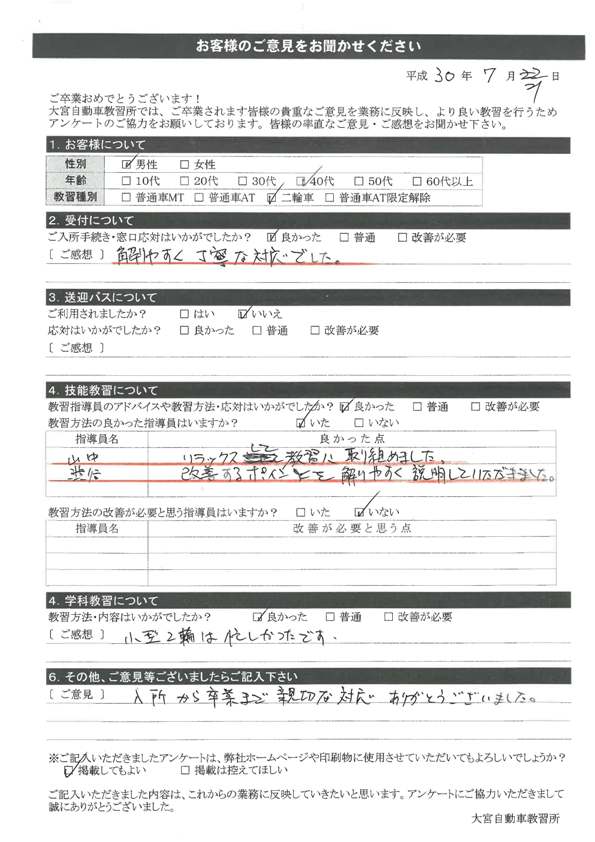 お客様のご意見をお聞かせください
平成 30 年 7 月 22 日
21
ご卒業おめでとうございます！
大宮自動車教習所では、ご卒業されます皆様の貴重なご意見を業務に反映し、より良い教習を行うため
アンケートのご協力をお願いしております。皆様の率直なご意見・ご感想をお聞かせ下さい。
1. お客様について
性別 ☑男性 □女性
年齢 □10代 □20代 □30代 ☑40代 □50代 □60代以上
教習種別 □普通車MT □普通車AT ☑二輪車 □普通車AT限定解除
2. 受付について
ご入所手続き・窓口応対はいかがでしたか？ ☑良かった □普通 □改善が必要
［ご感想］ 解りやすく 丁寧な対応でした。
3. 送迎バスについて
ご利用されましたか？ □はい ☑いいえ
応対はいかがでしたか？ □良かった □普通 □改善が必要
［ご感想］
4. 技能教習について
教習指導員のアドバイスや教習方法・応対はいかがでしたか？ ☑良かった □普通 □改善が必要
教習方法の良かった指導員はいますか？ ☑いた □いない
指導員名 良かった点
山中 リラックスして教習に取り組めました。
改善するポイントを解りやすく説明していただきました。
教習方法の改善が必要と思う指導員はいますか？ □いた ☑いない
指導員名 改善が必要と思う点
4. 学科教習について
教習方法・内容はいかがでしたか？ ☑良かった □普通 □改善が必要
［ご感想］ 小型2輪は忙しかったです.
6. その他、ご意見等ございましたらご記入下さい
［ご意見］ 入所から卒業まで親切な対応 ありがとうございました。
※ご記入いただきましたアンケートは、弊社ホームページや印刷物に使用させていただいてもよろしいでしょうか？
☑掲載してもよい □掲載は控えてほしい
ご記入いただきました内容は、これからの業務に反映していきたいと思います。アンケートにご協力いただきまして
誠にありがとうございました。
大宮自動車教習所